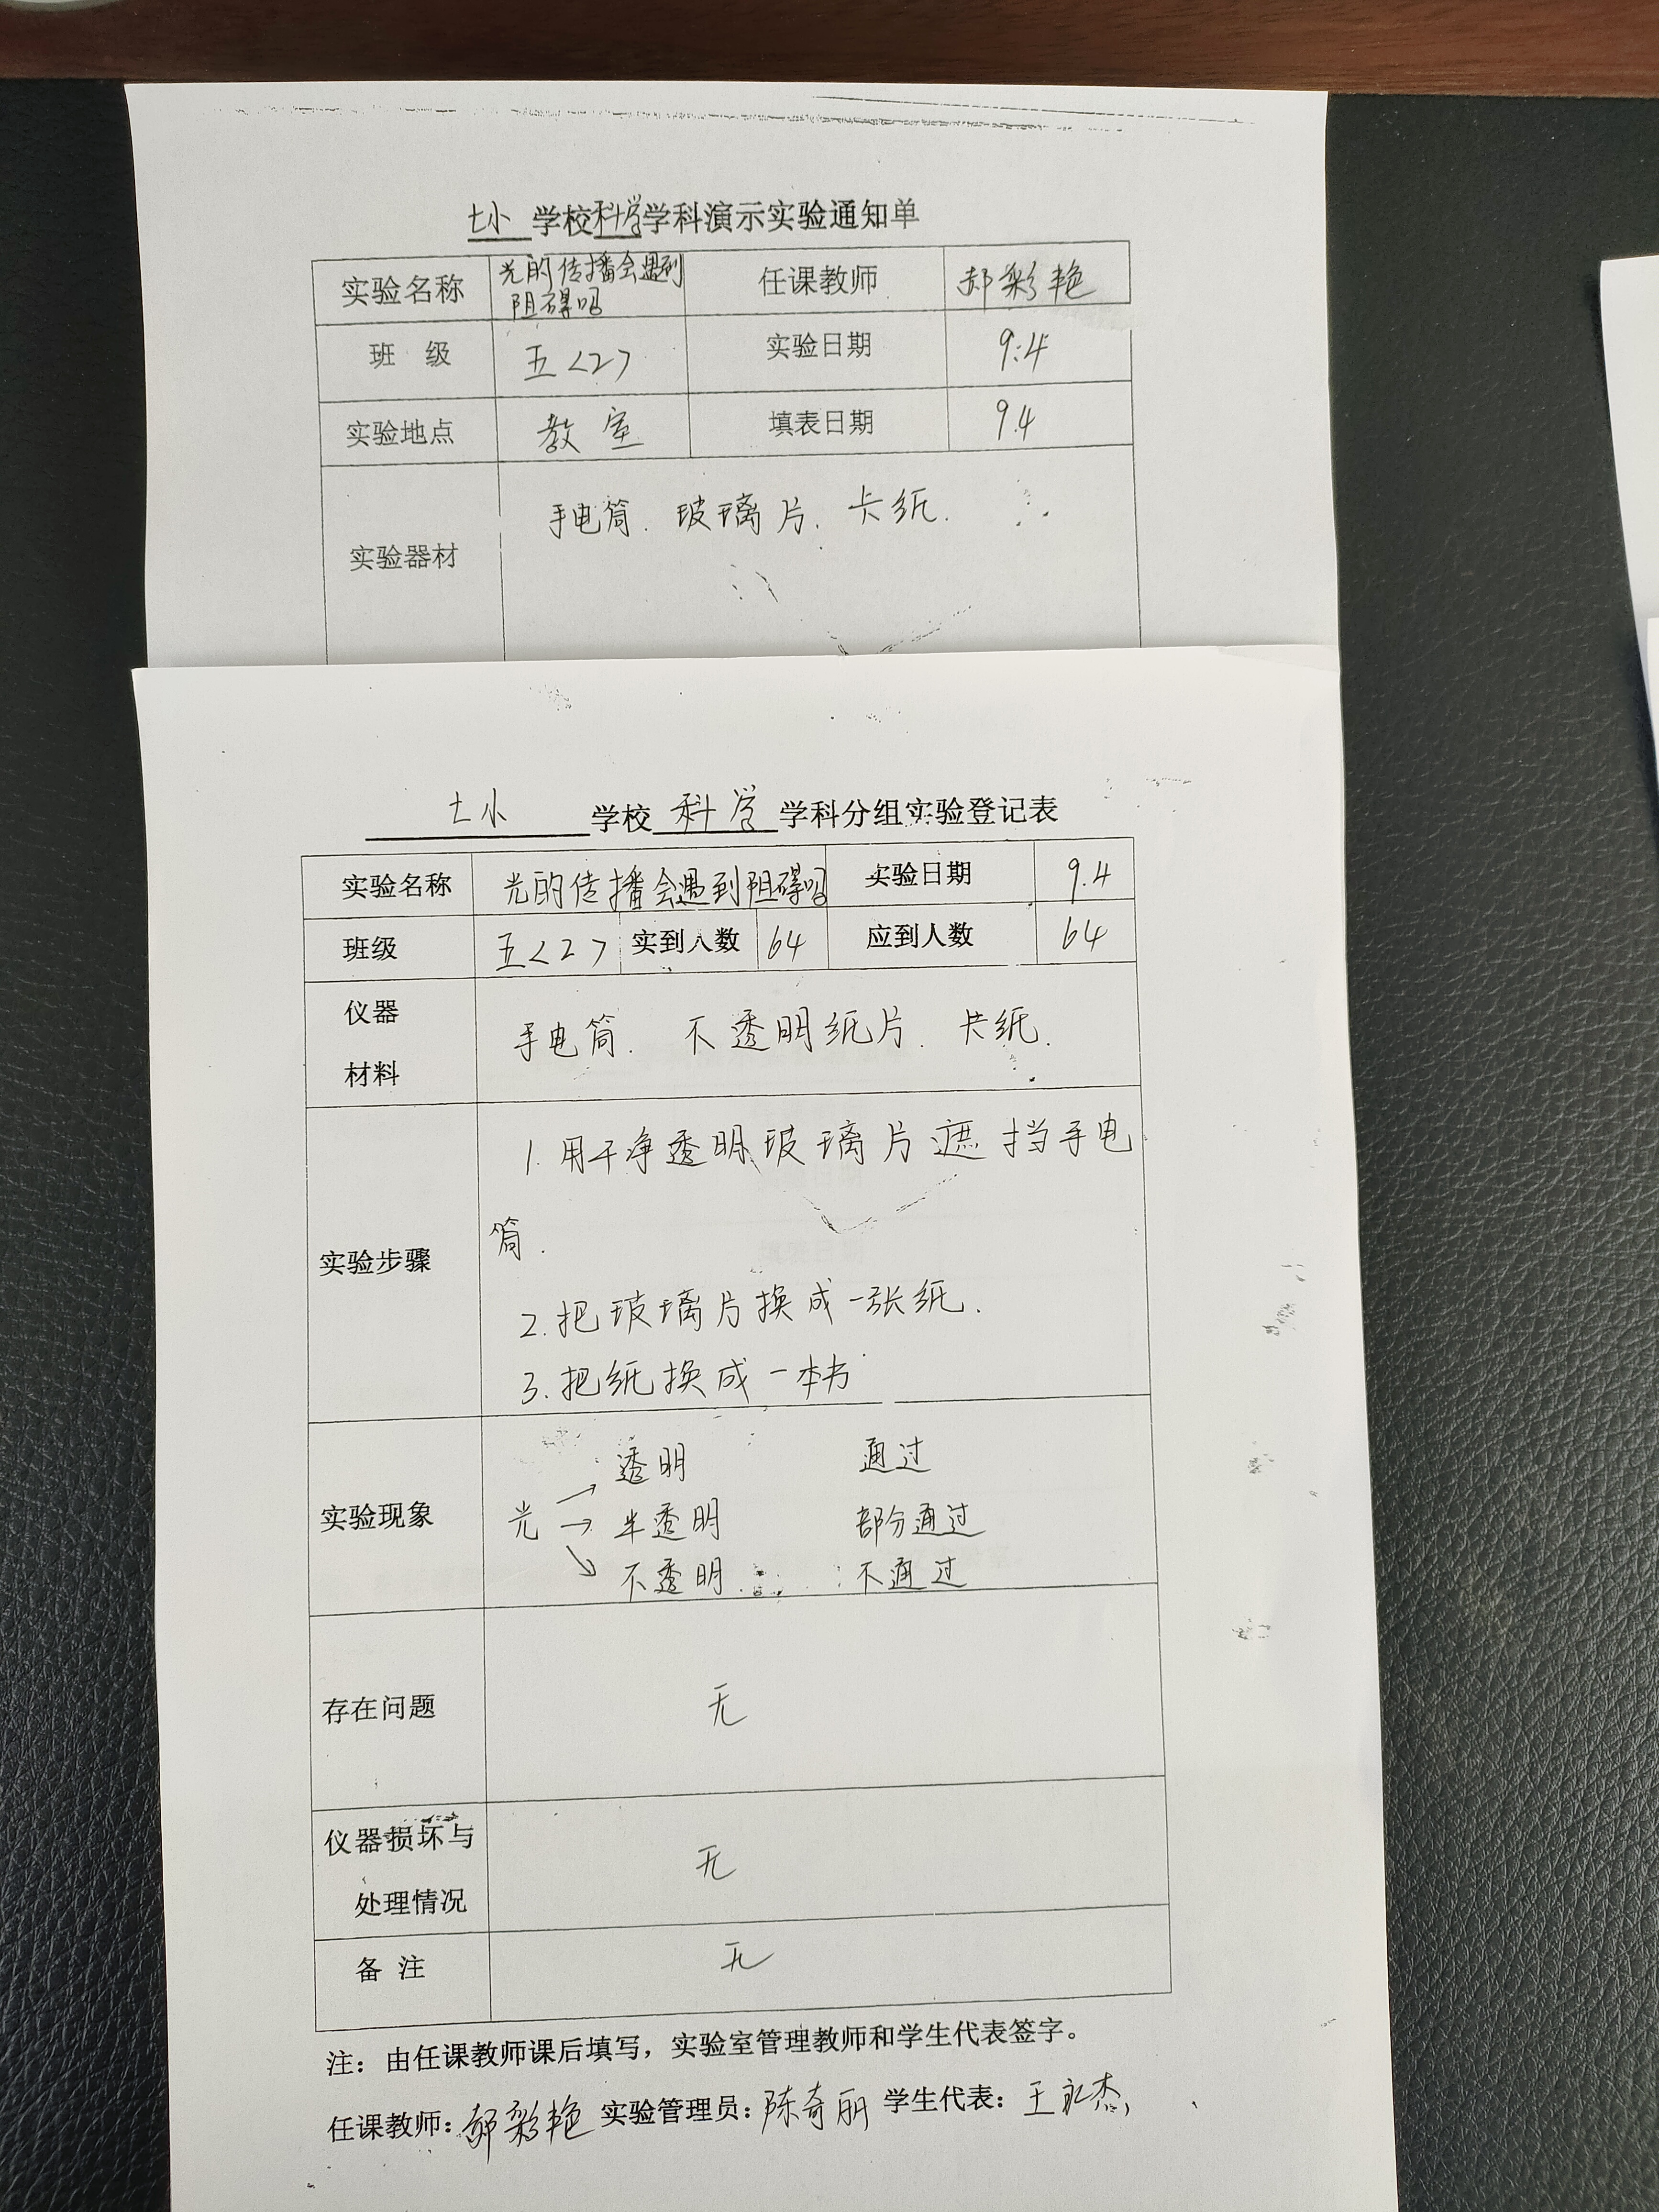 七小 学校科学学科演示实验通知单
实验名称 光的传播会遇到阻碍吗 任课教师 郝彩艳
班 级 五<2> 实验日期 9.4
实验地点 教室 填表日期 9.4
实验器材 手电筒. 玻璃片. 卡纸.
七小 学校 科学 学科分组实验登记表
实验名称 光的传播会遇到阻碍吗 实验日期 9.4
班级 五<2> 实到人数 64 应到人数 64
仪器
材料
手电筒. 不透明纸片. 卡纸.
实验步骤
1. 用干净透明玻璃片遮挡手电
筒.
2. 把玻璃片换成一张纸.
3. 把纸换成一本书
实验现象
光 → 透明 通过
→ 半透明 部分通过
→ 不透明 不通过
存在问题 无
仪器损坏与
处理情况
无
备 注 无
注：由任课教师课后填写，实验室管理教师和学生代表签字。
任课教师：郝彩艳 实验管理员：陈奇丽 学生代表：王永杰